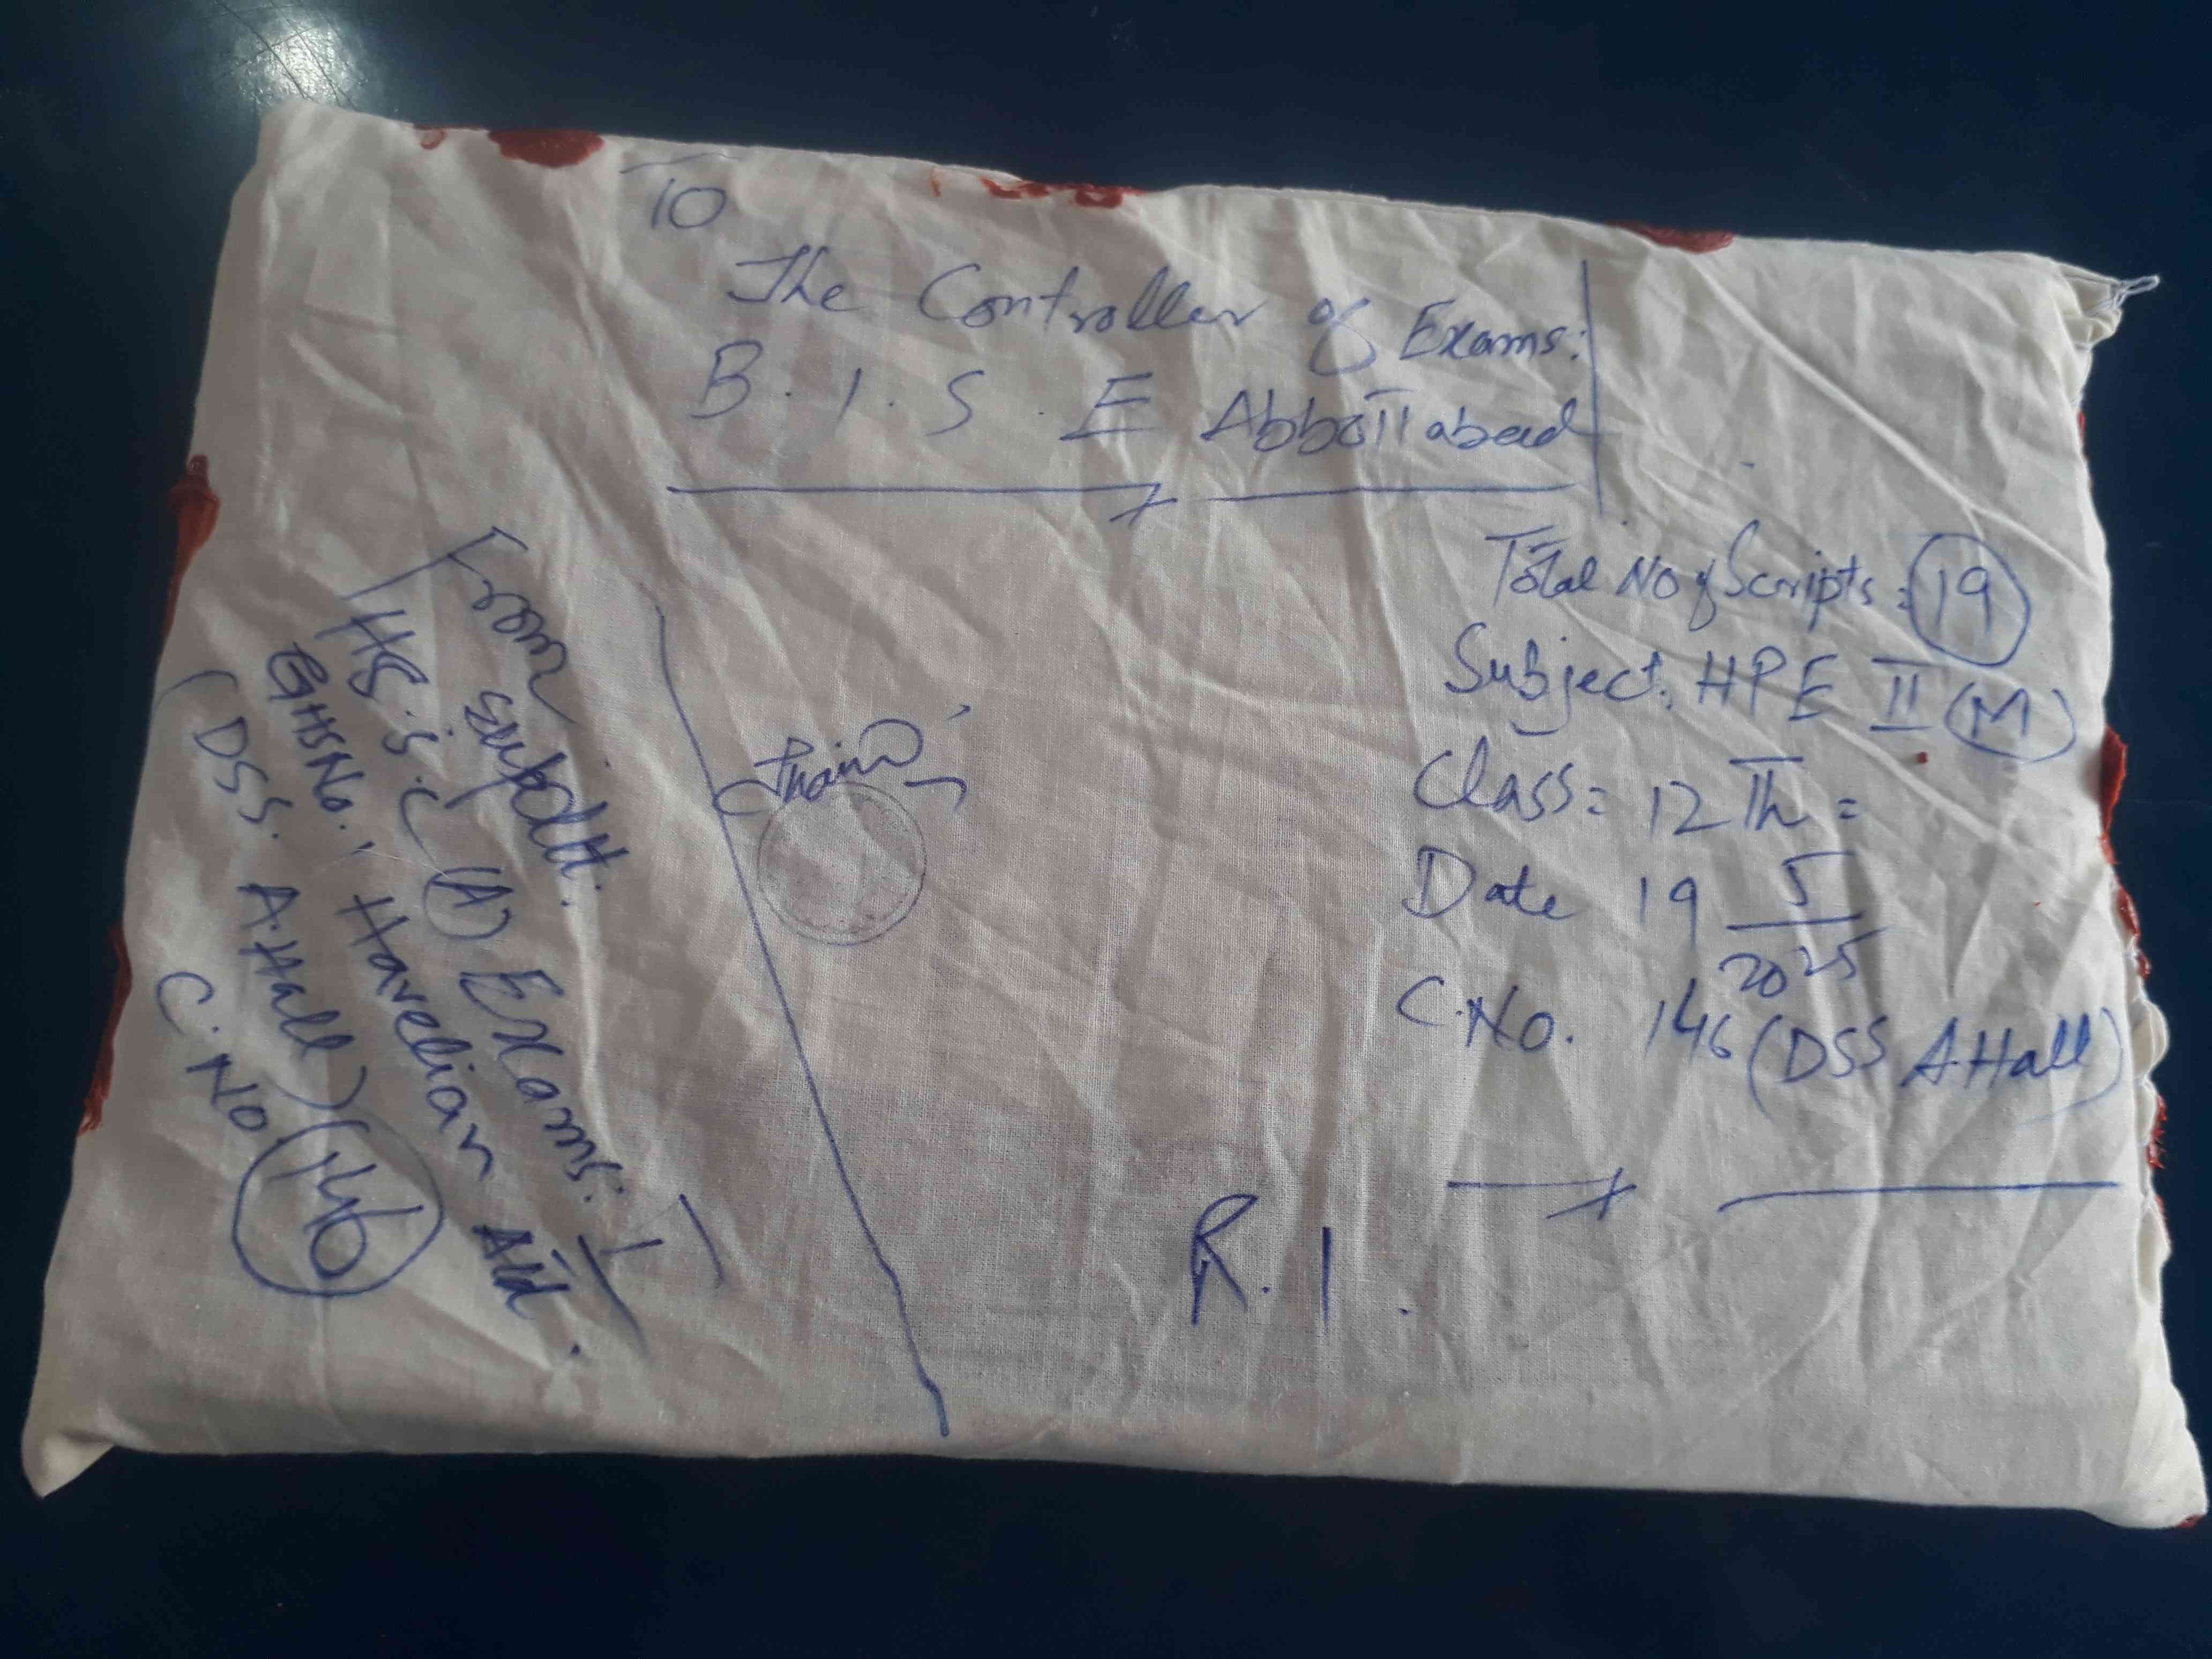 To
The Controller of Exams:
B.I.S.E Abbottabad
Total No of Scripts = 19
Subject. HPE II (M)
Class = 12Th =
Date 19 5/2025
C.No. 146 (DSS A.Hall)
R.I.
From
Supdtt.
HS.S.C (A) Exams:
GHSNo.1 Havelian Atd.
(DSS. A.Hall)
C.No 146